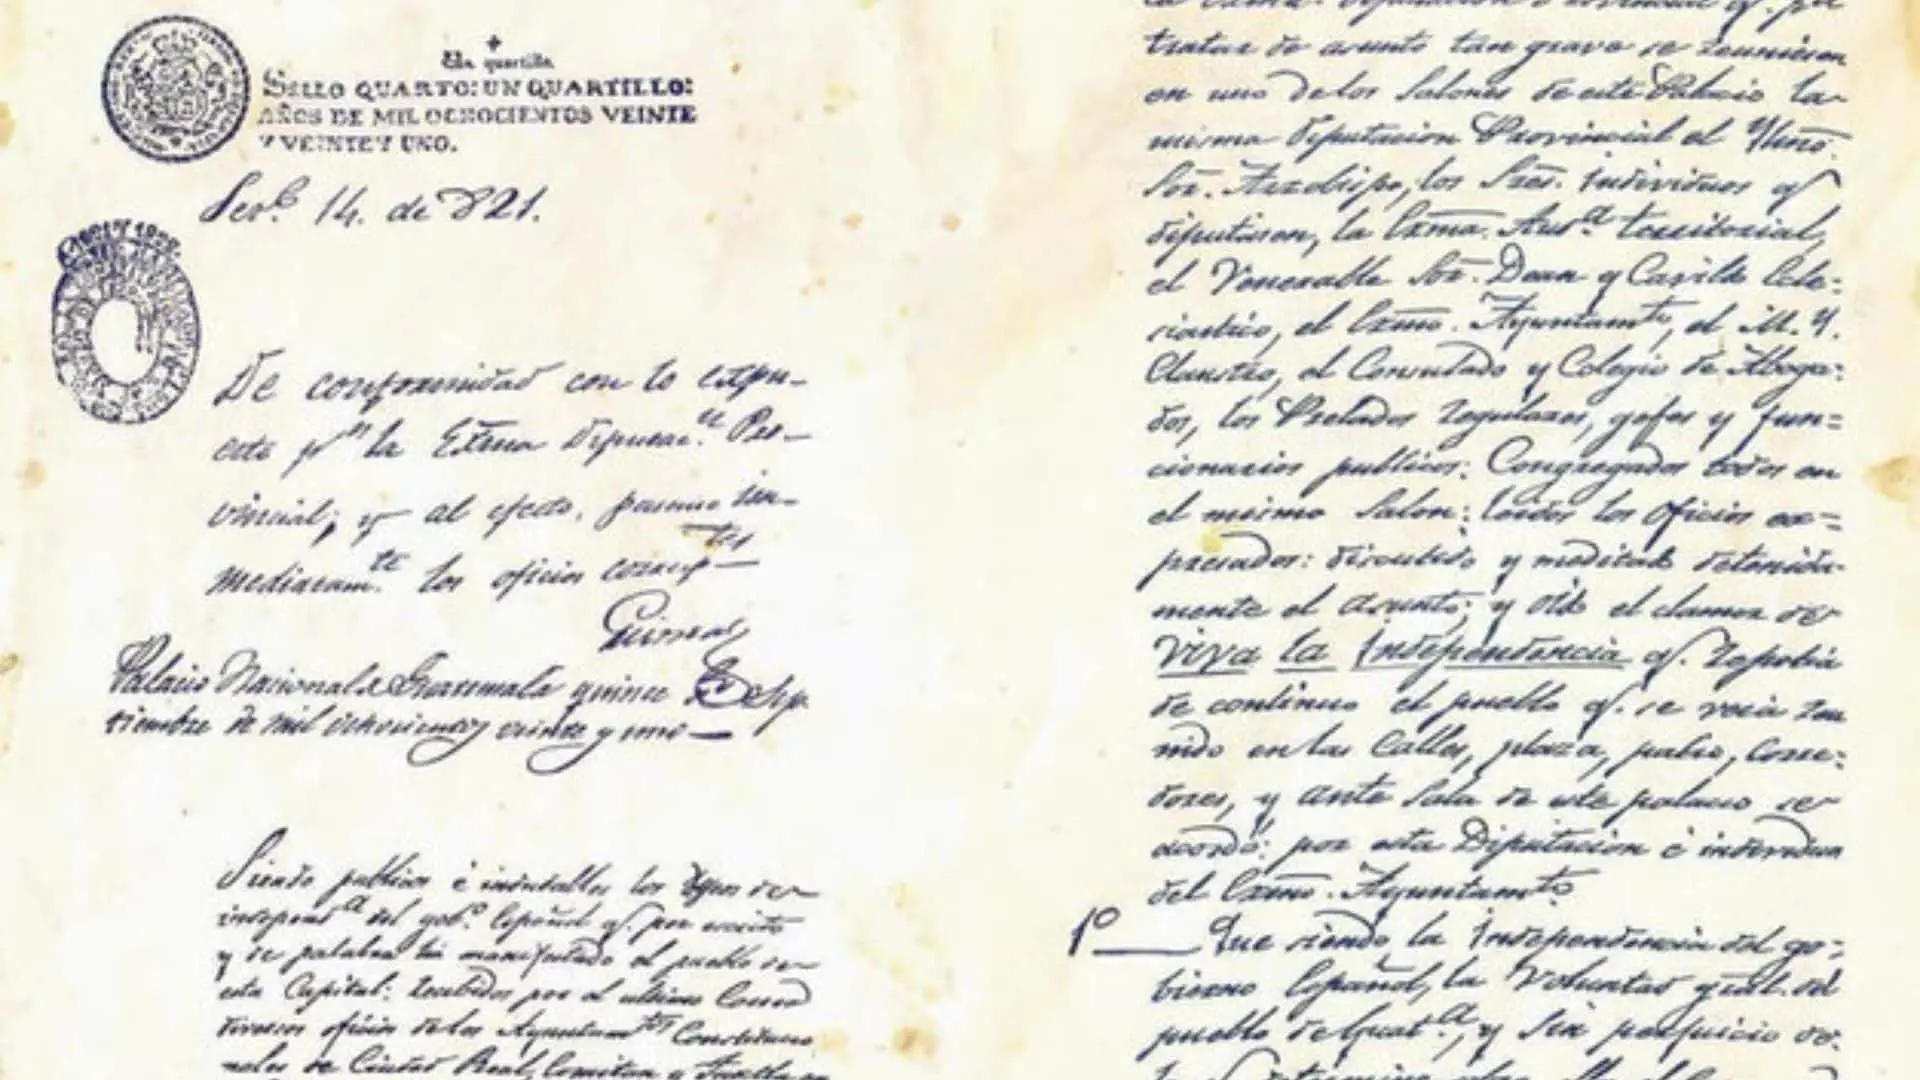 Un quartillo
SELLO QUARTO: UN QUARTILLO:
AÑOS DE MIL OCHOCIENTOS VEINTE
Y VEINTE Y UNO.
14. de 821.
De conformidad con lo expu-
esto pr la Exma Diputac.n Pro-
vincial; y al efecto, pasense in-
mediatam.te los oficios corresp-
tes
Palacio Nacional de Guatemala quince de Sep
tiembre de mil ochocientos veinte y uno —
Siendo publicos é indudables los deseos de
independ.a del gob.o Español q. por escrito
y de palabra ha manifestado el pueblo de
esta Capital: recibidos por el ultimo Correo
diversos oficios de los Ayuntam.tos Constitucio
nales de Ciudad Real, Comitan y Tuxtla en
tratar de asunto tan grave se reuniesen
en uno de los Salones de este Palacio la
misma Diputacion Provincial el Yllmo.
Sor. Arzobispo, los Sres. individuos q
diputasen, la Exma. Aud.a territorial,
el Venerable Sor. Dean y Cavildo Ecle:
siastico, el Exmo. Ayuntamto, el M. Y.
Claustro, el Consulado y Colegio de Aboga:
dos, los Prelados regulares, gefes y fun=
cionarios publicos: Congregados todos en
el mismo Salon: leidos los oficios ex=
presados: discutido y meditado detenida-
mente el asunto; y oido el clamor de
Viva la Independencia q. repetia
de continuo el pueblo q. se veia reu
nido en las Calles, plaza, patio, Corre:
dores, y ante Sala de este palacio se
acordó: por esta Diputacion é individuos
del Exmo. Ayuntamto
1o — Que siendo la Independencia del go:
bierno Español, la Voluntad gral. del
pueblo de Guat.a, y sin perjuicio de